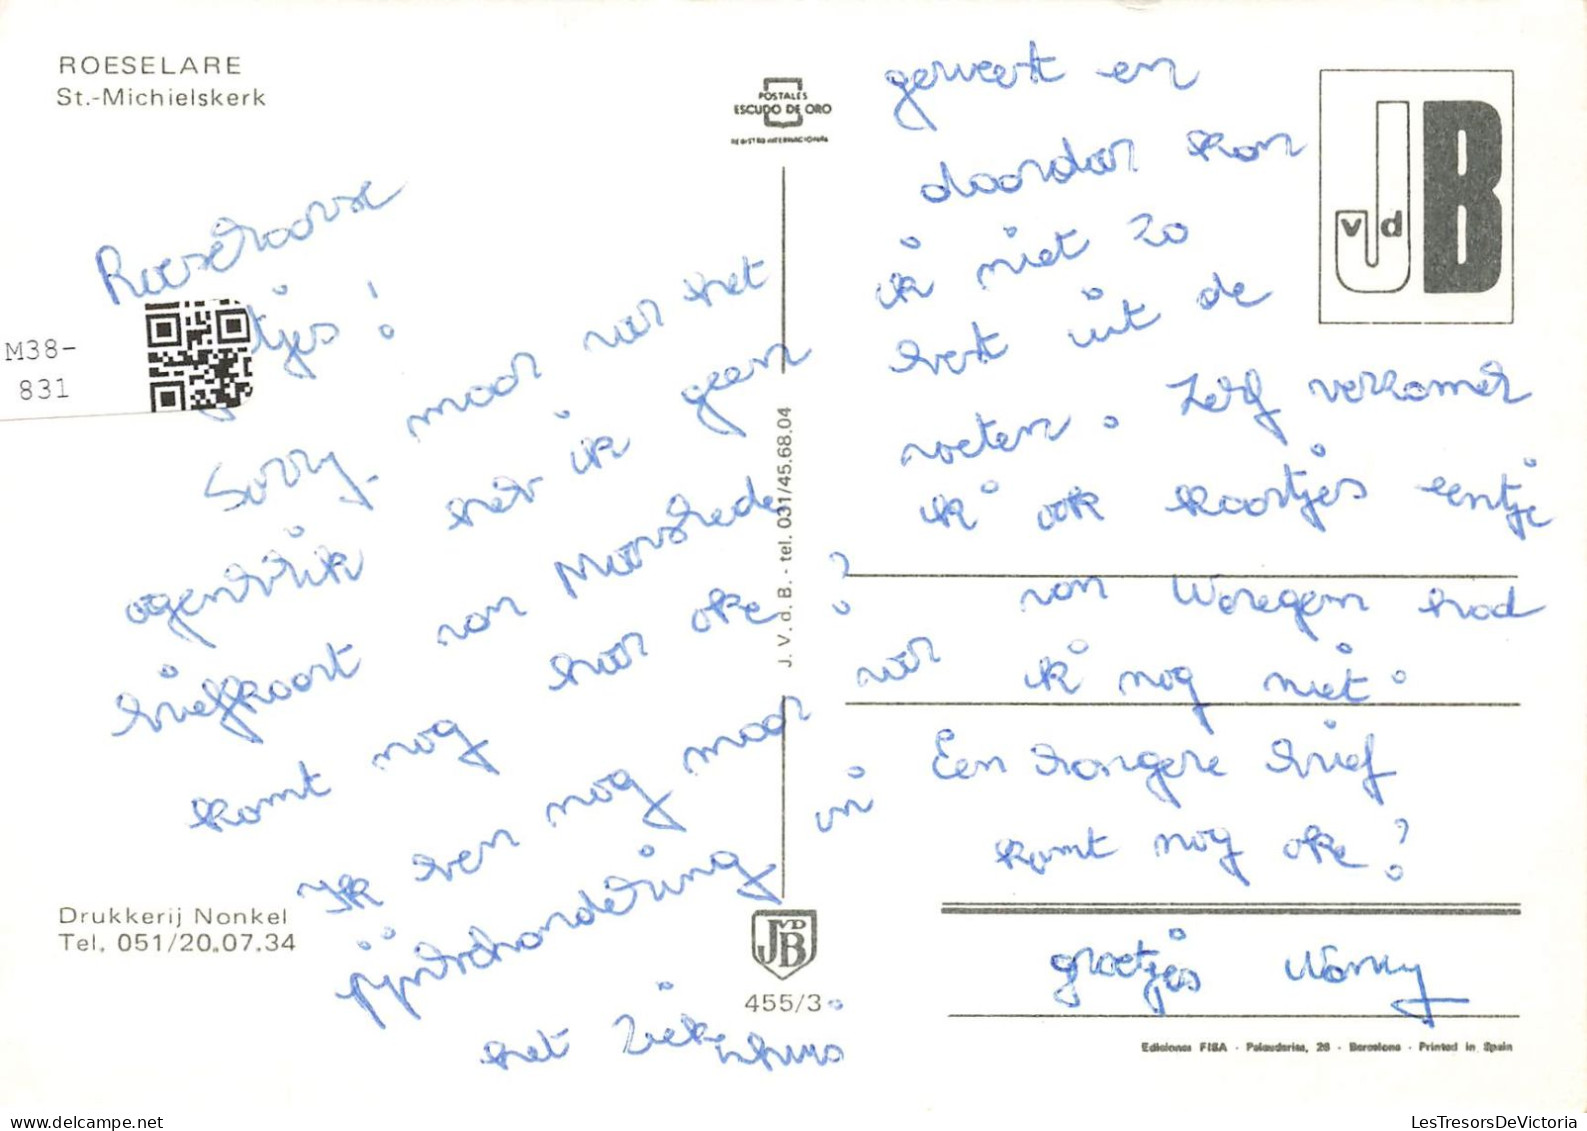 ROESELARE
St.-Michielskerk
POSTALES
ESCUDO DE ORO
REGISTRO INTERNACIONAL
M38-
831
tjes!
Sorry maar voor het
ogenblik heb ik geen
briefkaart van Moorslede
komt nog hoor oke?
Ik ben nog maar voor
pijnbehandeling in
het ziekenhuis
geweest en
daardoor kon
ik niet zo
best uit de
voeten. Zelf verzamel
ik ook kaartjes eentje
van Waregem had
ik nog niet.
Een langere brief
komt nog oke?
groetjes Nancy
J. V. d. B. - tel. 031/45.68.04
J vd B
Drukkerij Nonkel
Tel. 051/20.07.34
JVDB
455/3
Ediciones FISA - Palaudarias, 26 - Barcelona - Printed in Spain
delcampe.net
LesTresorsDeVictoria